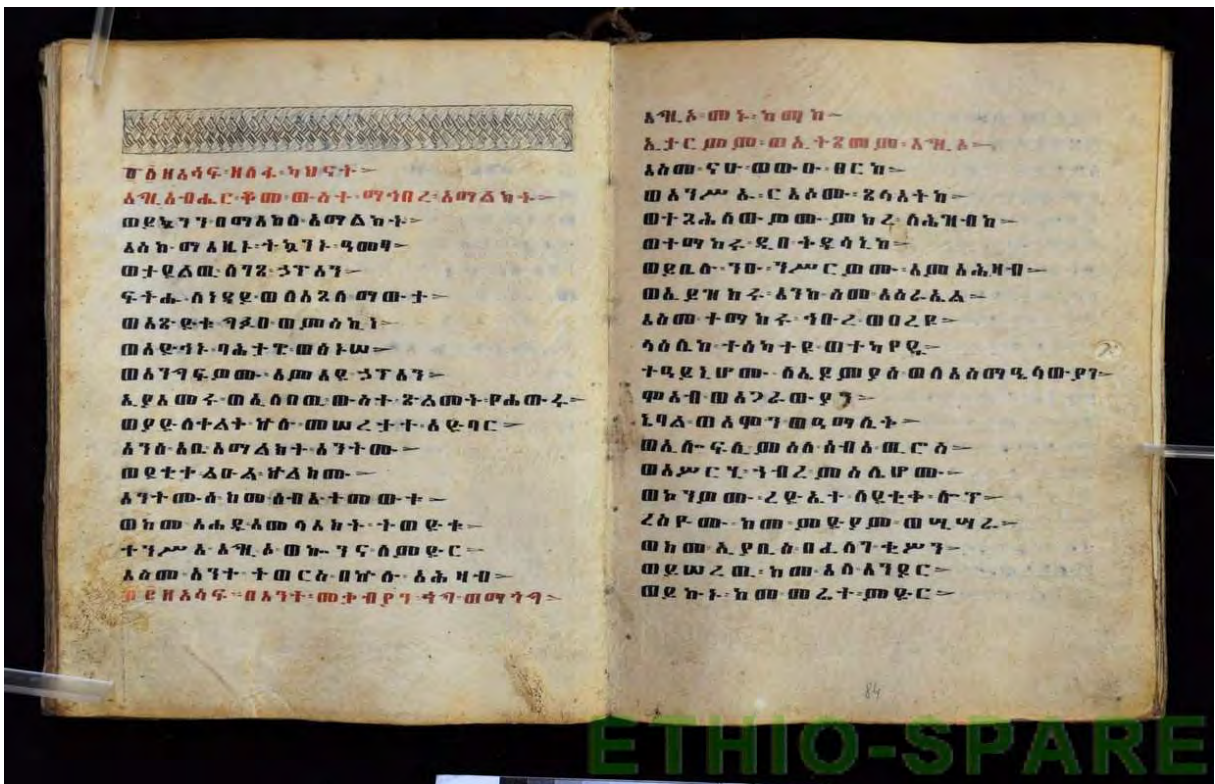 ፹፩ዘአሳፍ፡ዘሰፋ፡ካህናት፨
እግዚአብሔር፡ቆመ፡ውስተ፡ማኅበረ፡አማልክት፨
ወይኴንን፡በማእከለ፡አማልክት፨
እስከ፡ማእዜኑ፡ትኴንኑ፡ዓመፃ፨
ወታደልዉ፡ለገጸ፡ኃጥአን፨
ፍትሑ፡ለነዳይ፡ወለእጓለ፡ማውታ፨
ወአጽድቁ፡ግፉዐ፡ወምስኪነ፨
ወአድኅኑ፡ባሕታዌ፡ወዕኑሠ፨
ወአንግፍዎሙ፡እምእደ፡ኃጥአን፨
ኢያእመሩ፡ወኢለበዉ፡ውስተ፡ጽልመት፡የሐውሩ፨
ወያድለቀልቅ፡ኵሉ፡መሠረታተ፡ለምድር፨
አንሰ፡እቤ፡አማልክት፡አንትሙ፨
ወደቂቀ፡ልዑል፡ኵልክሙ፨
አንትሙሰ፡ከመ፡ሰብእ፡ትመውቱ፨
ወከመ፡አሐዱ፡እመላእክት፡ትወድቁ፨
ተንሥእ፡እግዚኦ፡ወኰንና፡ለምድር፨
እስመ፡አንተ፡ትወርስ፡በኵሉ፡አሕዛብ፨
፹፪ዘአሳፍ፡በእንተ፡መቃብያን፡ጎግ፡ወማጎግ፨
እግዚኦ፡መኑ፡ከማከ፨
ኢታርምም፡ወኢትጸመም፡እግዚኦ፨
እስመ፡ናሁ፡ወውዑ፡ፀርከ፨
ወአንሥኡ፡ርእሶሙ፡ጸላእትከ፨
ወተጓሕለውዎሙ፡ምክረ፡ለሕዝብከ፨
ወተማከሩ፡ዲበ፡ቅዱሳኒከ፨
ወይቤሉ፡ንዑ፡ንሥርዎሙ፡እምአሕዛብ፨
ወኢይዝከሩ፡እንከ፡ስመ፡እስራኤል፨
እስመ፡ተማከሩ፡ኅቡረ፡ወዐረዩ፨
ላዕሌከ፡ተሰካተዩ፡ወተካየዱ፨
ተዓይኒሆሙ፡ለኤዶምያስ፡ወለእስማዔላውያን፨
ሞአብ፡ወአጋራውያን፨
ጌባል፡ወአሞን፡ወዓማሌቅ፨
ወኢሎፍሊ፡ምስለ፡ሰብአ፡ጢሮስ፨
ወአሦርሂ፡ኀብረ፡ምስሌሆሙ፨
ወኮንዎሙ፡ረድኤተ፡ለደቂቀ፡ሎጥ፨
ረስዮሙ፡ከመ፡ምድያም፡ወሲሣራ፨
ወከመ፡ኢያቢስ፡በፈለገ፡ቂሶን፨
ወይሠረዉ፡ከመ፡እለ፡እንዶር፨
ወይኩኑ፡ከመ፡መሬተ፡ምድር፨
84
ETHIO-SPARE